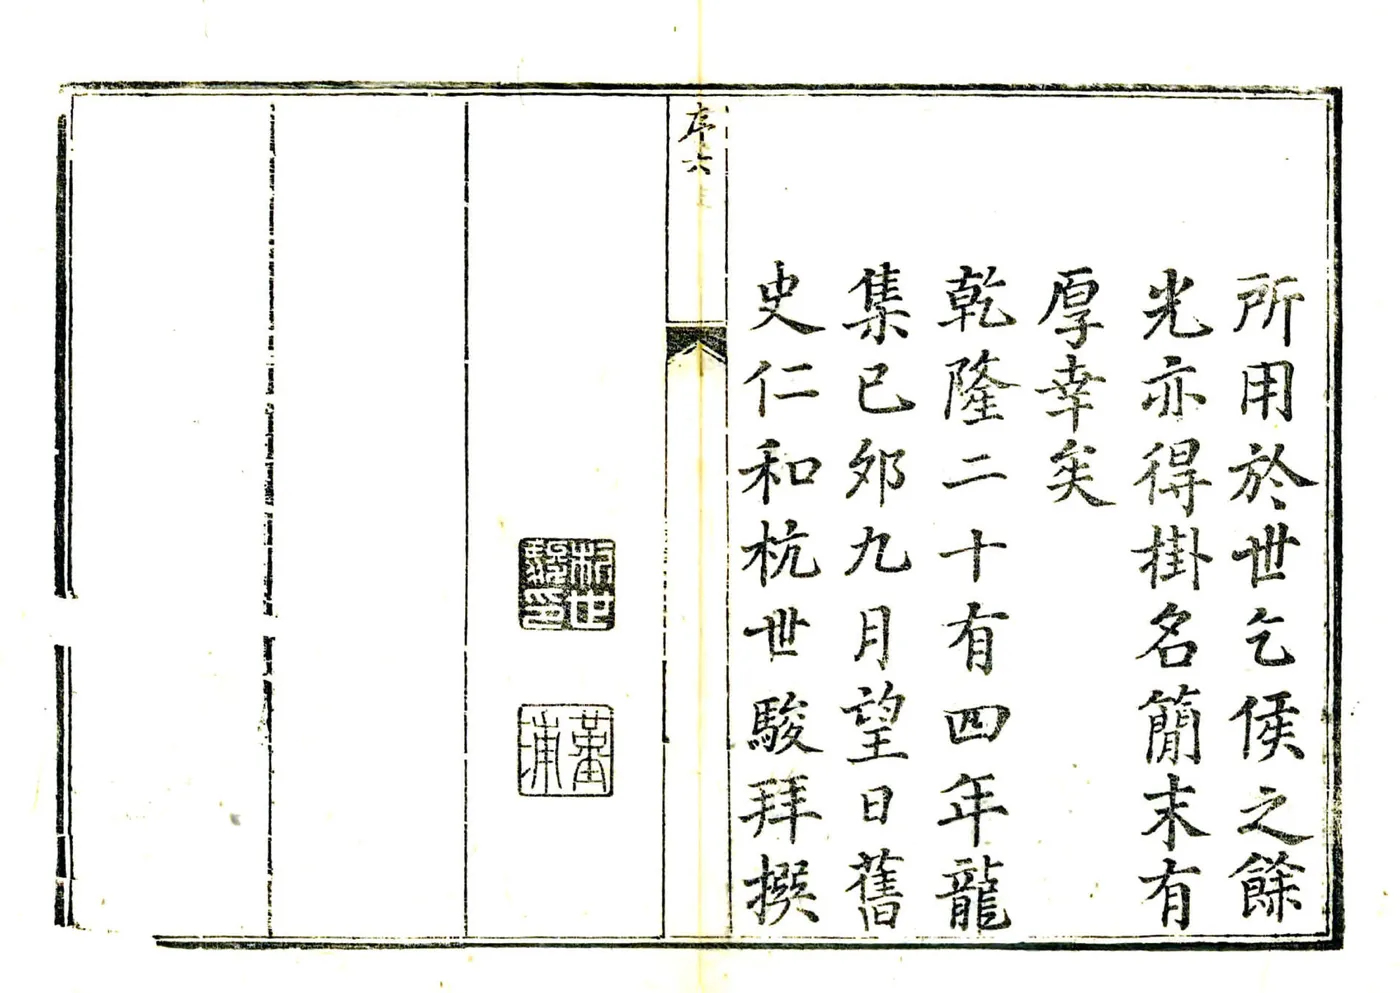 所用於世乞侯之餘
光亦得掛名簡末有
厚幸矣
乾隆二十有四年龍
集已夘九月望日舊
史仁和杭世駿拜撰
序六
杭世駿印
菫浦